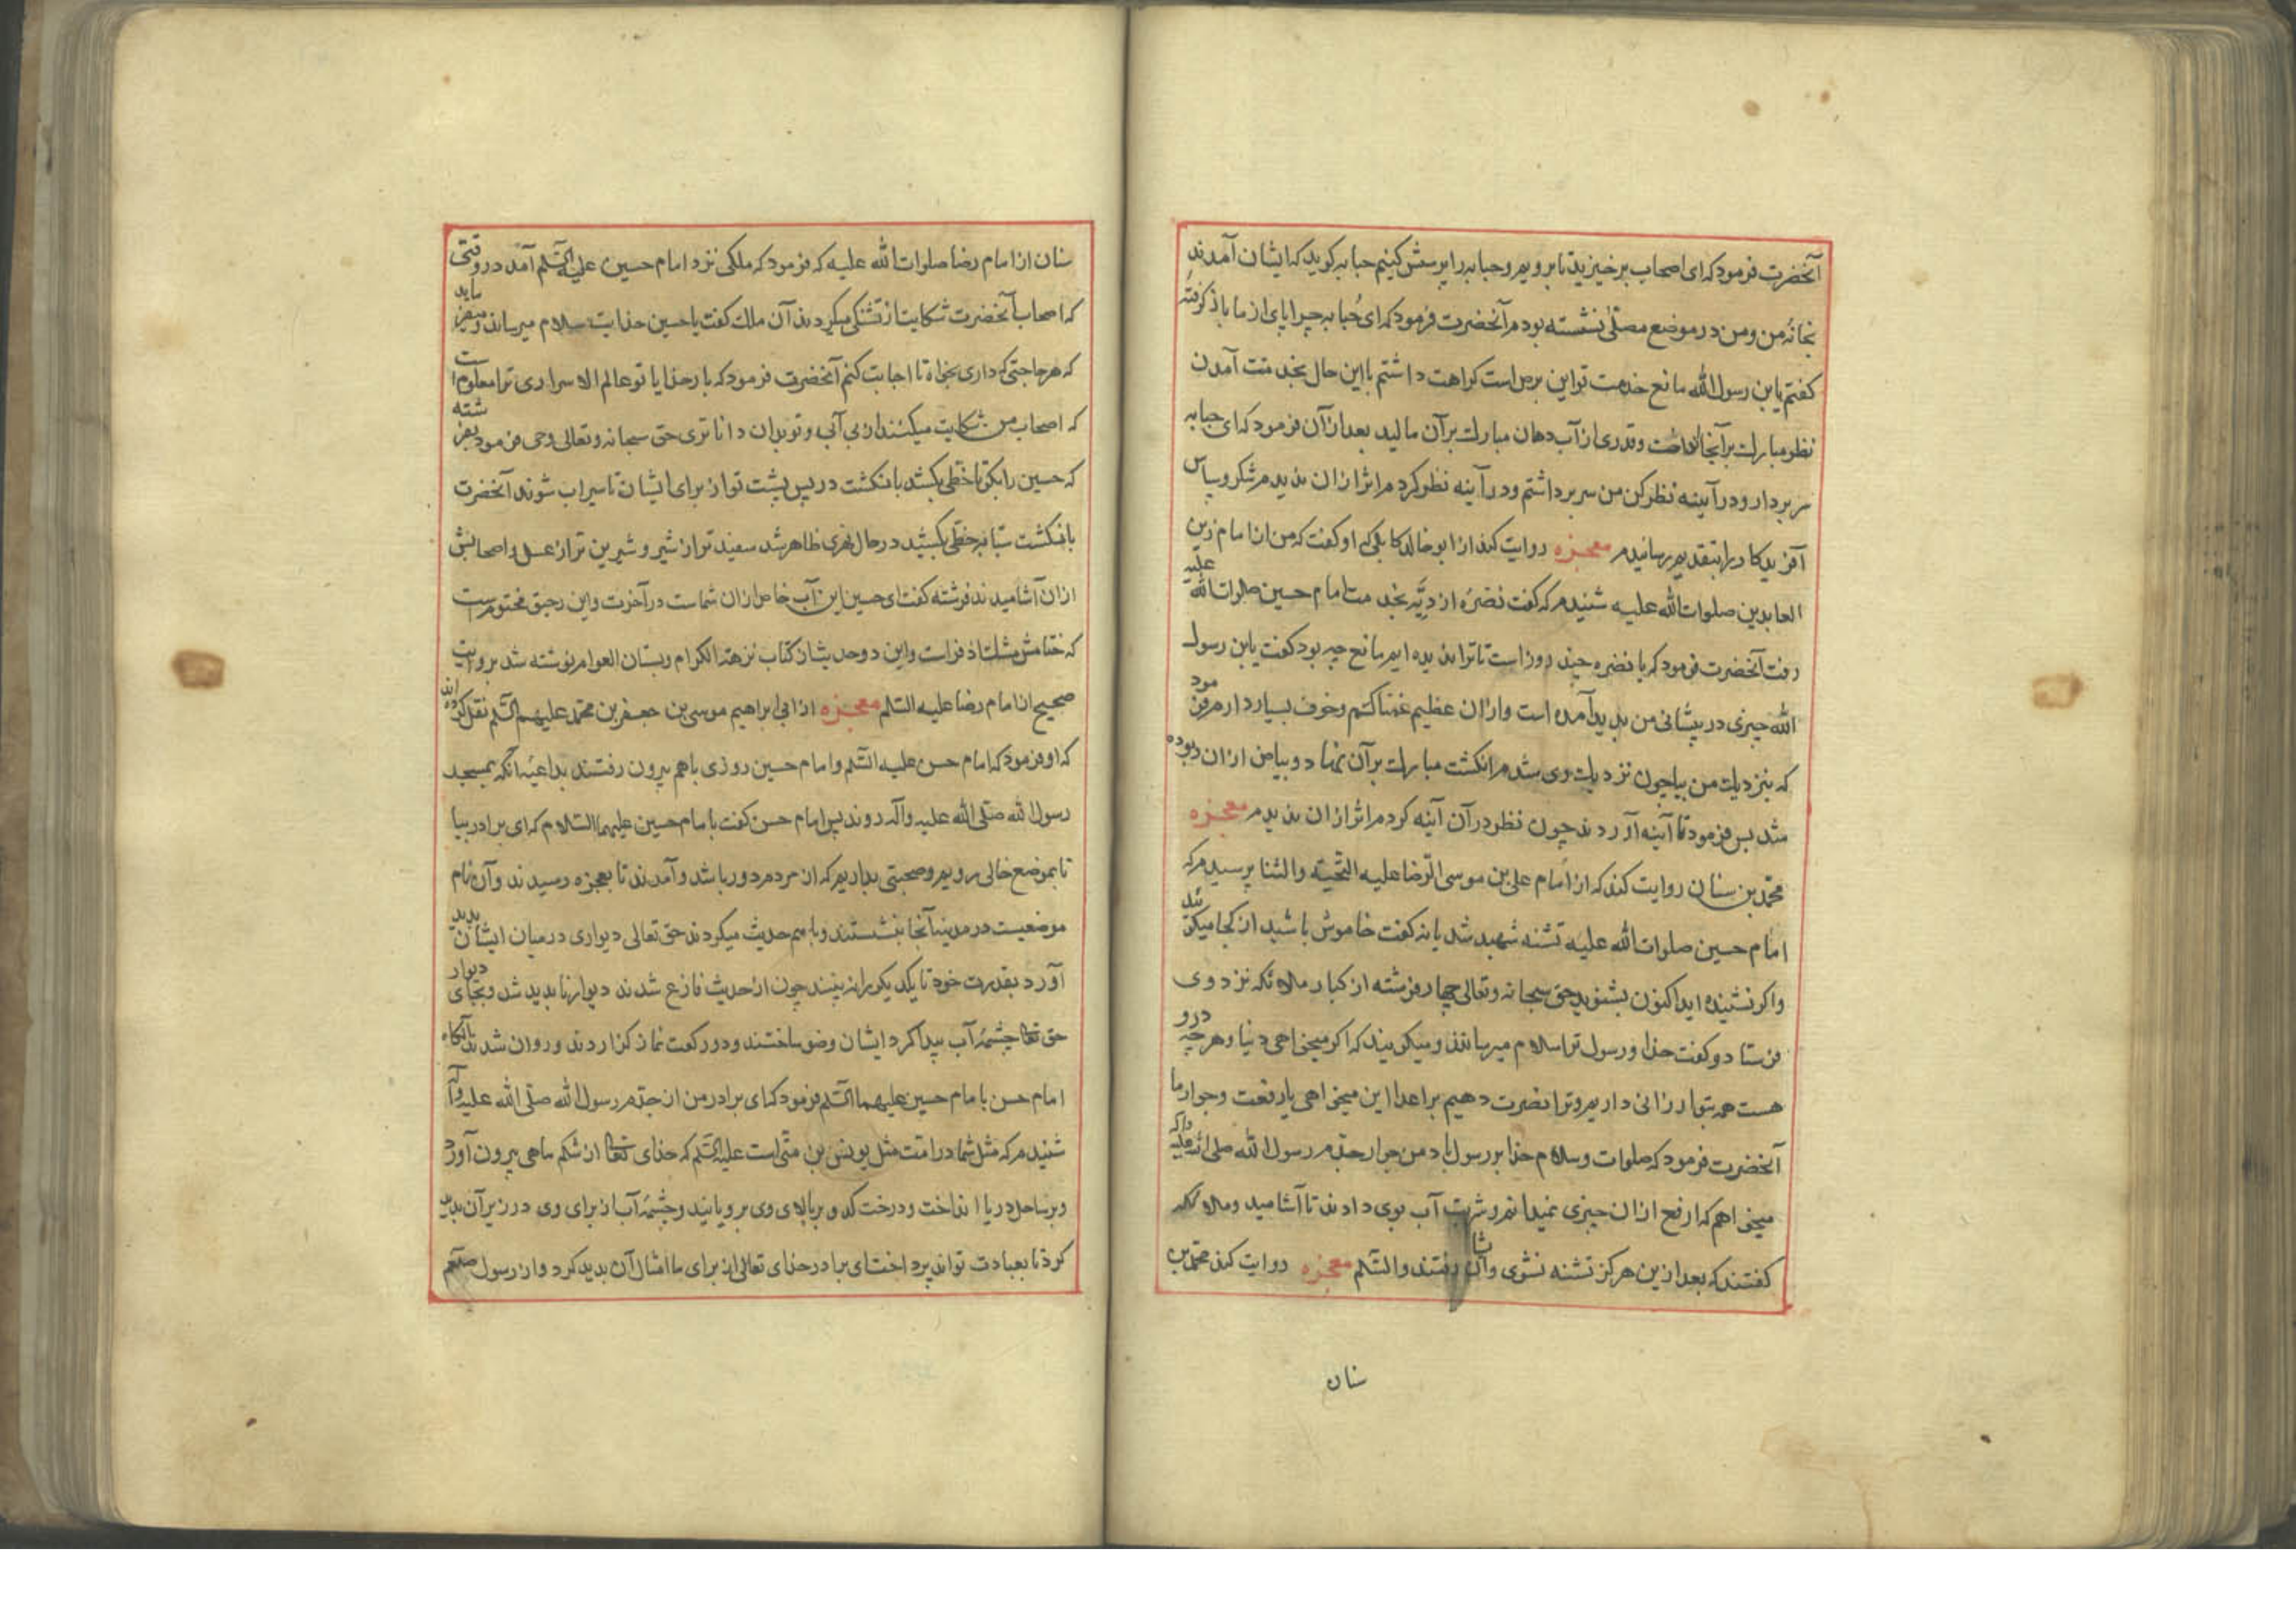 آنحضرت فرمود که ای اصحاب برخیزید تا برویم و حبابه را پرسش کنیم حبابه کوید که ایشان آمدند
بخانهٔ من و من در موضع مصلّی نشسته بودم آنحضرت فرمود که ای حُبابه چرا پای از ما باز کرفتهٔ
کفتم یابن رسول الله مانع خدمت تو این برص است کراهت داشتم با این حال بخدمتت آمدن
نظر مبارک بر آنجا انداخت و قدری از آب دهان مبارک بر آن مالید بعد از آن فرمود که ای حبابه
سر بردار و در آیینه نظر کن من سر برداشتم و در آینه نظر کردم اثر از ان ندیدم شکر و سپاس
آفریدکار را بتقدیم رسانیدم معجزه روایت کند از ابو خالد کابلی که او کفت که من از امام زین
العابدین صلوات الله علیه شنیدم که کفت نضرهٔ ازدیّه بخدمت امام حسین صلوات الله علیه
رفت آنحضرت فرمود که یا نضره چند روز است تا ترا ندیده ایم مانع چه بود کفت یابن رسول
الله چیزی در پیشانی من پدید آمده است و از ان عظیم غمناکم و خوف بسیار دارم فرمود
که بنزدیک من بیا چون نزدیک وی شدم انکشت مبارک بر آن نهاد و بیاض از ان ربوده
شد پس فرمود تا آینه آوردند چون نظر در آن آینه کردم اثر از ان ندیدم معجزه
محمّد بن سنان روایت کند که از امام علی بن موسی الرّضا علیه التحیّة والثنا پرسیدم که
امام حسین صلوات الله علیه تشنه شهید شد یا نه کفت خاموش باشید از کجا میکوئید
واکر نشنیده اید اکنون بشنوید حق سبحانه وتعالی چهار فرشته از کبار ملائکه نزد وی
فرستاد و کفت خدا و رسول ترا سلام میرسانند و میکویند که اکر میخواهی دنیا و هر چه درو
هست همه بتو ارزانی داریم و ترا نصرت دهیم بر اعدا این میخواهی یا رفعت و جوار ما
آنحضرت فرمود که صلوات و سلام خدا بر رسول باد من جوار جدّم رسول الله صلی الله علیه واله
میخواهم که ارفع از ان چیزی نمیدانم و شربت آب بوی دادند تا آشامید و ملائکه
کفتند که بعد ازین هرکز تشنه نشوی و آن رفتند والسّلم معجزه روایت کند محمّد بن
سنان
سنان از امام رضا صلوات الله علیه که فرمود که ملکی نزد امام حسین علیه السّلم آمد در وقتی
که اصحاب آنحضرت شکایت از تشنکی میکردند آن ملک کفت یا حسین خدایت سلام میرساند و میفرماید
که هر حاجتی که داری بخواه تا اجابت کنم آنحضرت فرمود که بار خدایا تو عالم الاسراری ترا معلوم است
که اصحاب من شکایت میکنند از بی آبی و تو بدان داناتری حق سبحانه وتعالی وحی فرمود بفرشته
که حسین را بکو تا خطّی بکشد بانکشت در پس پشت تو از برای ایشان تا سیراب شوند آنحضرت
بانکشت سبّابه خطّی بکشید در حال نهری ظاهر شد سفید تر از شیر و شیرین تر از عسل و اصحابش
از ان آشامیدند فرشته کفت ای حسین این آب خاص از ان شماست در آخرت و این رحیق مختومست
که ختامش مشک اذفر است و این دو حدیث از کتاب نزهة الکرام و بستان العوام نوشته شد بروایت
صحیح از امام رضا علیه السّلم معجزه از ابی ابراهیم موسی بن جعفر بن محمّد علیهم السّلم نقل کرده اند
که او فرمود که امام حسن علیه السّلم و امام حسین روزی باهم بیرون رفتند بداعیهٔ آنکه بمسجد
رسول الله صلّی الله علیه وآله روند پس امام حسن کفت با امام حسین علیهما السّلام که ای برادر بیا
تا بموضع خالی رویم و صحبتی بداریم که از مردم دور باشد و آمدند تا بعجزه رسیدند و آن نام
موضعیست در مدینه آنجا بنشستند و باهم حدیث میکردند حق تعالی دیواری در میان ایشان پدید
آورد بقدرت خود تا یکدیکر را نه بینند چون از حدیث فارغ شدند دیوار ناپدید شد و بجای دیوار
حق تعالی چشمهٔ آب پیدا کرد ایشان وضو ساختند و دو رکعت نماز کزاردند و روان شدند آنکاه
امام حسن با امام حسین علیهما السّلم فرمود که ای برادر من از جدّم رسول الله صلّی الله علیه وآله
شنیدم که مثل شما در امّت مثل یونس بن متّی است علیه السّلم که خدای تعالی از شکم ماهی بیرون آورد
و بر ساحل دریا انداخت و درخت کدو بر بالای وی برویانید و چشمهٔ آب از برای وی در زیر آن پدید
کرد تا بعبادت تواند پرداخت ای برادر خدای تعالی از برای ما امثال آن پدید کرد و از رسول صلعم